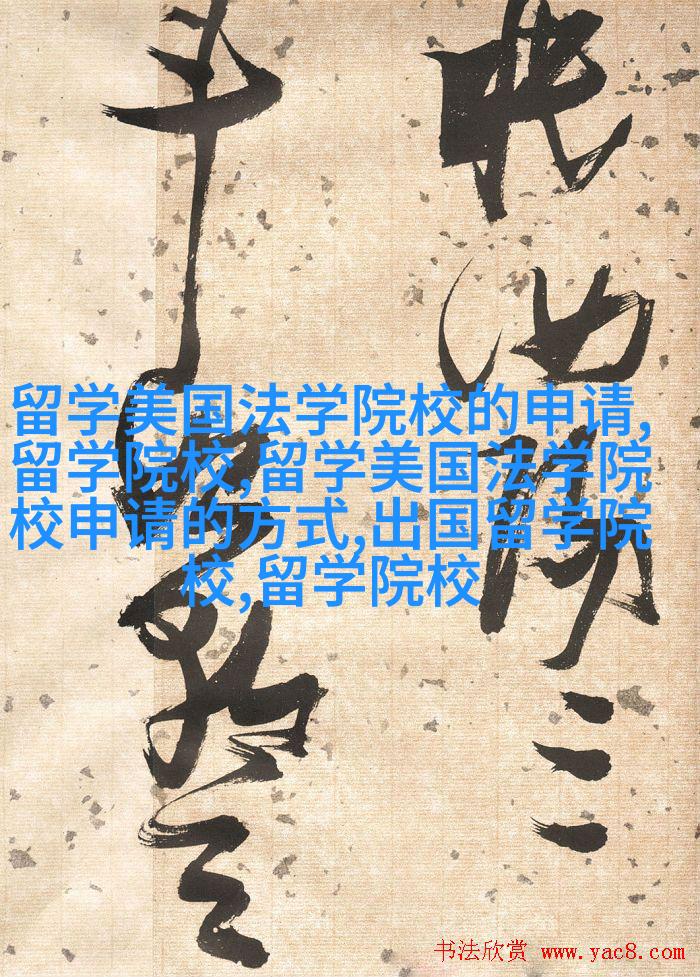 眠汝陽三
斗始朝天
留学美国法学院校的申请,
留学院校,留学美国法学院
校申请的方式,出国留学院
校,留学院校
书法欣赏 www.yac8.com